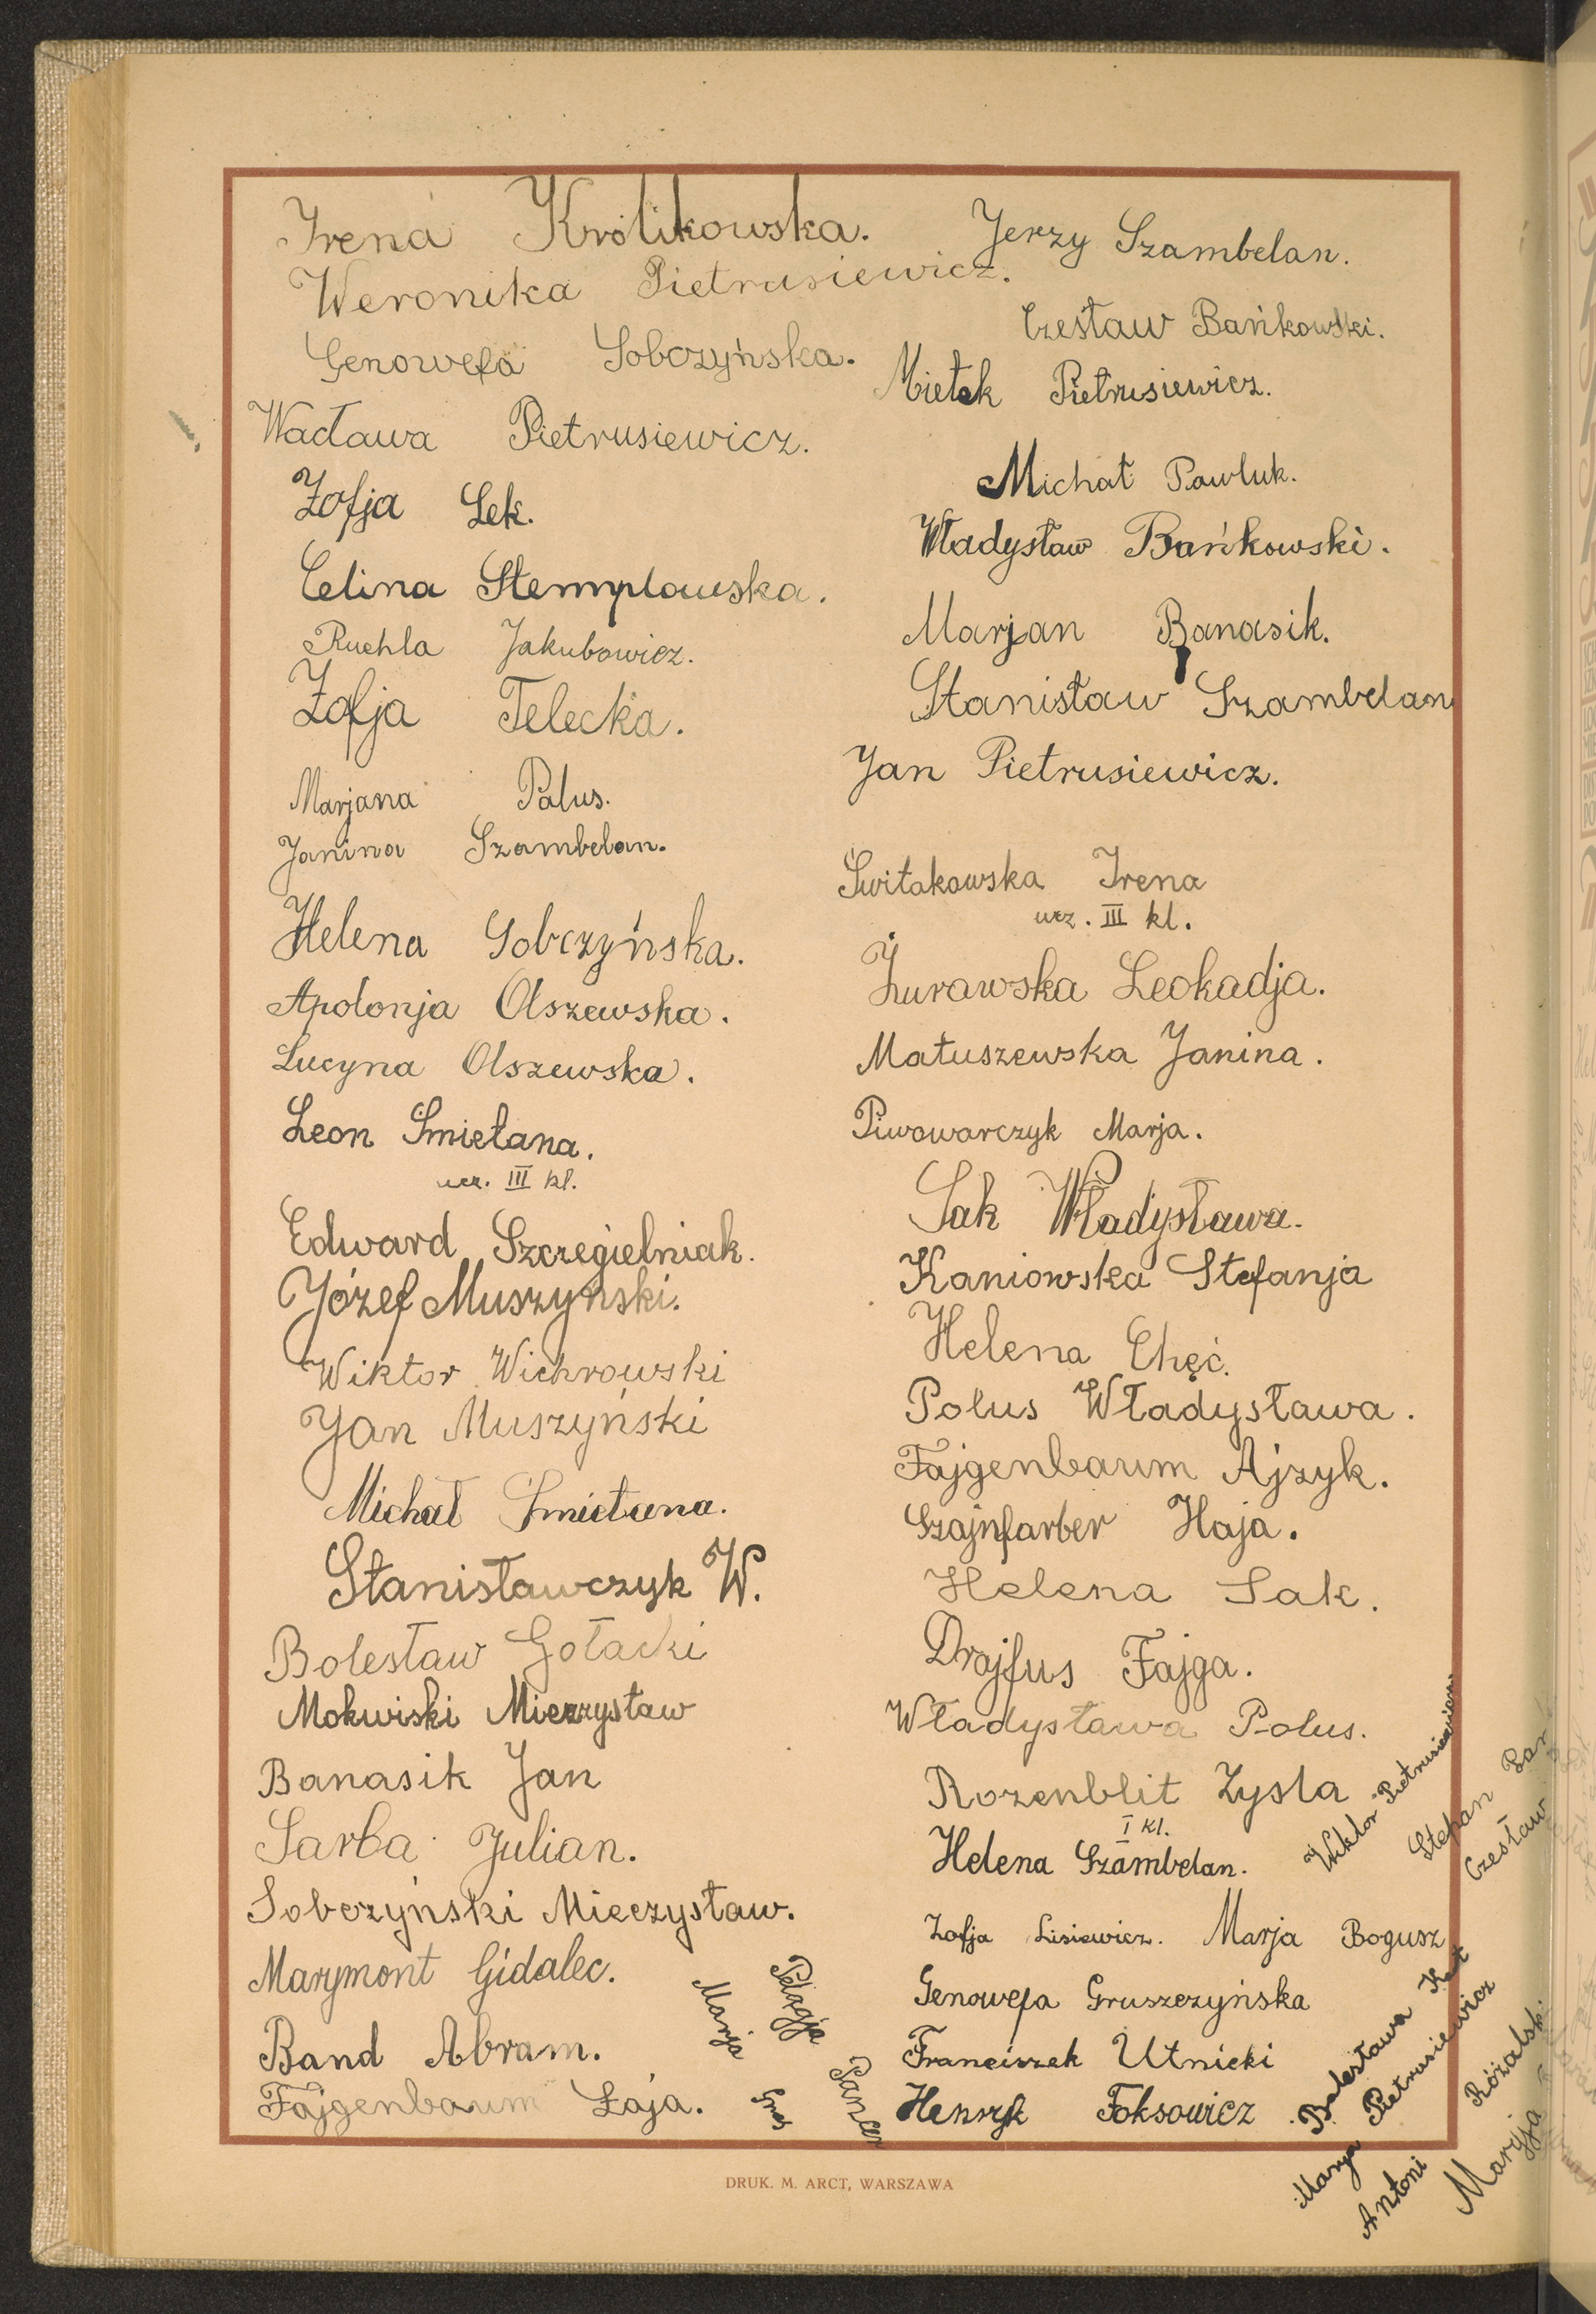 Irena Królikowska.
Weronika Pietrusiewicz.
Genowefa Sobczyńska.
Wacława Pietrusiewicz.
Zofja Lek.
Celina Stemplowska.
Ruchla Jakubowicz.
Zofja Telecka.
Marjana Palus.
Janina Szambelan.
Helena Sobczyńska.
Apolonja Olszewska.
Lucyna Olszewska.
Leon Śmietana.
ucz. III kl.
Edward Szczegielniak.
Józef Muszyński.
Wiktor Wichrowski
Jan Muszyński
Michał Śmietana.
Stanisławczyk W.
Bolesław Gołacki
Mokwiski Mieczysław
Banasik Jan
Sarba Julian.
Sobczyński Mieczysław.
Marymont Gidalec.
Band Abram.
Fajgenbaum Łaja.
Marja
Pelagja
Panzer
Jerzy Szambelan.
Czesław Bańkowski.
Mietek Pietrusiewicz.
Michał Pawluk.
Władysław Bańkowski.
Marjan Banasik.
Stanisław Szambelan
Jan Pietrusiewicz.
Świtakowska Irena
ucz. III kl.
Żurawska Leokadja.
Matuszewska Janina.
Piwowarczyk Marja.
Sak Władysława.
Kaniowska Stefanja
Helena Chęć.
Polus Władysława.
Fajgenbaum Ajzyk.
Szajnfarber Haja.
Helena Sak.
Drajfus Fajga.
Władysława Polus.
Rozenblit Zysla
I kl.
Helena Szambelan.
Zofja Lisiewicz. Marja Bogusz
Genowefa Gruszczyńska
Franciszek Utnicki
Henryk Foksowicz
Wiktor Pietrusiewicz
Stefan
Czesław
Bolesława
Marja Pietrusiewicz
Antoni
Marja
DRUK. M. ARCT, WARSZAWA